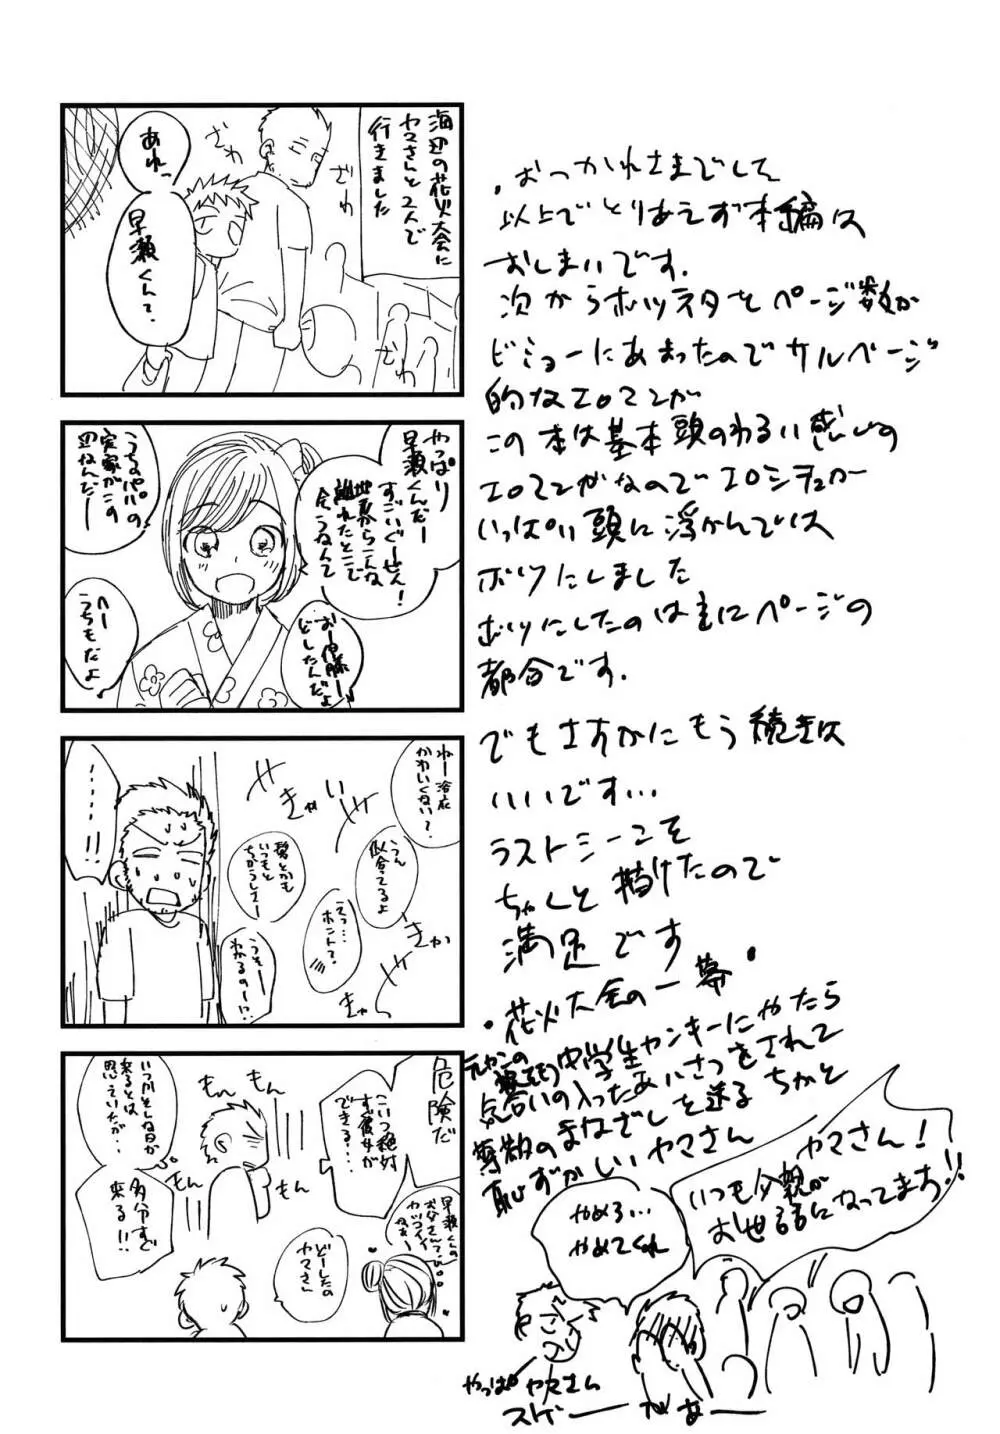 海辺の花火大会に
ヤマさんと2人で
行きました
ざわ
ざわ
ざわ
あれっ
早瀬くんて、
やっぱり
早瀬くんだー
すごいぐーせん!
地元からこんな
離れたとこで
会うなんて
おー伊藤ー
どしたんだよ
うちのパパの
実家がこの
辺なんだー
へー
うちもだよ
ねー浴衣
かわいくない?
うん
似合ってるよ
えっ…
ホント?
髪とかも
いつもと
ちがうしさー
うそー
わかるのー!?
きゃ
きゃ
きゃ
きゃっ
………!!
危険だ
こいつ絶対
すぐ彼女が
できる…
もん
もん
もん
もん
いつかそんな日が
来るとは
思っていたが…
多分すぐ
来る!!
早瀬くんの
お父さんて
カッコイイ
なぁ
どーしたの
ヤマさん
・おつかれさまでした
以上でとりあえず本編は
おしまいです.
次からボツネタとページ数が
ビミョーにあまったのでサルベージ
的なエロマンガ
この本は基本頭のわるい感じの
エロマンガなのでエロシチュが
いっぱい頭に浮かんでは
ボツにしました
ボツにしたのは主にページの
都合です.
でもさすがにもう続きは
いいです…
ラストシーンこそ
ちゃんと描けたので
満足です
・花火大会の一幕・
中学生ヤンキーにやたら
気合いの入ったあいさつをされて
尊敬のまなざしを送る ちかと
恥ずかしいヤマさん
ヤマさん!
いつも父親が
お世話になってます!!
やめろ…
やめてくれ
やっぱヤマさん
スゲー
があー